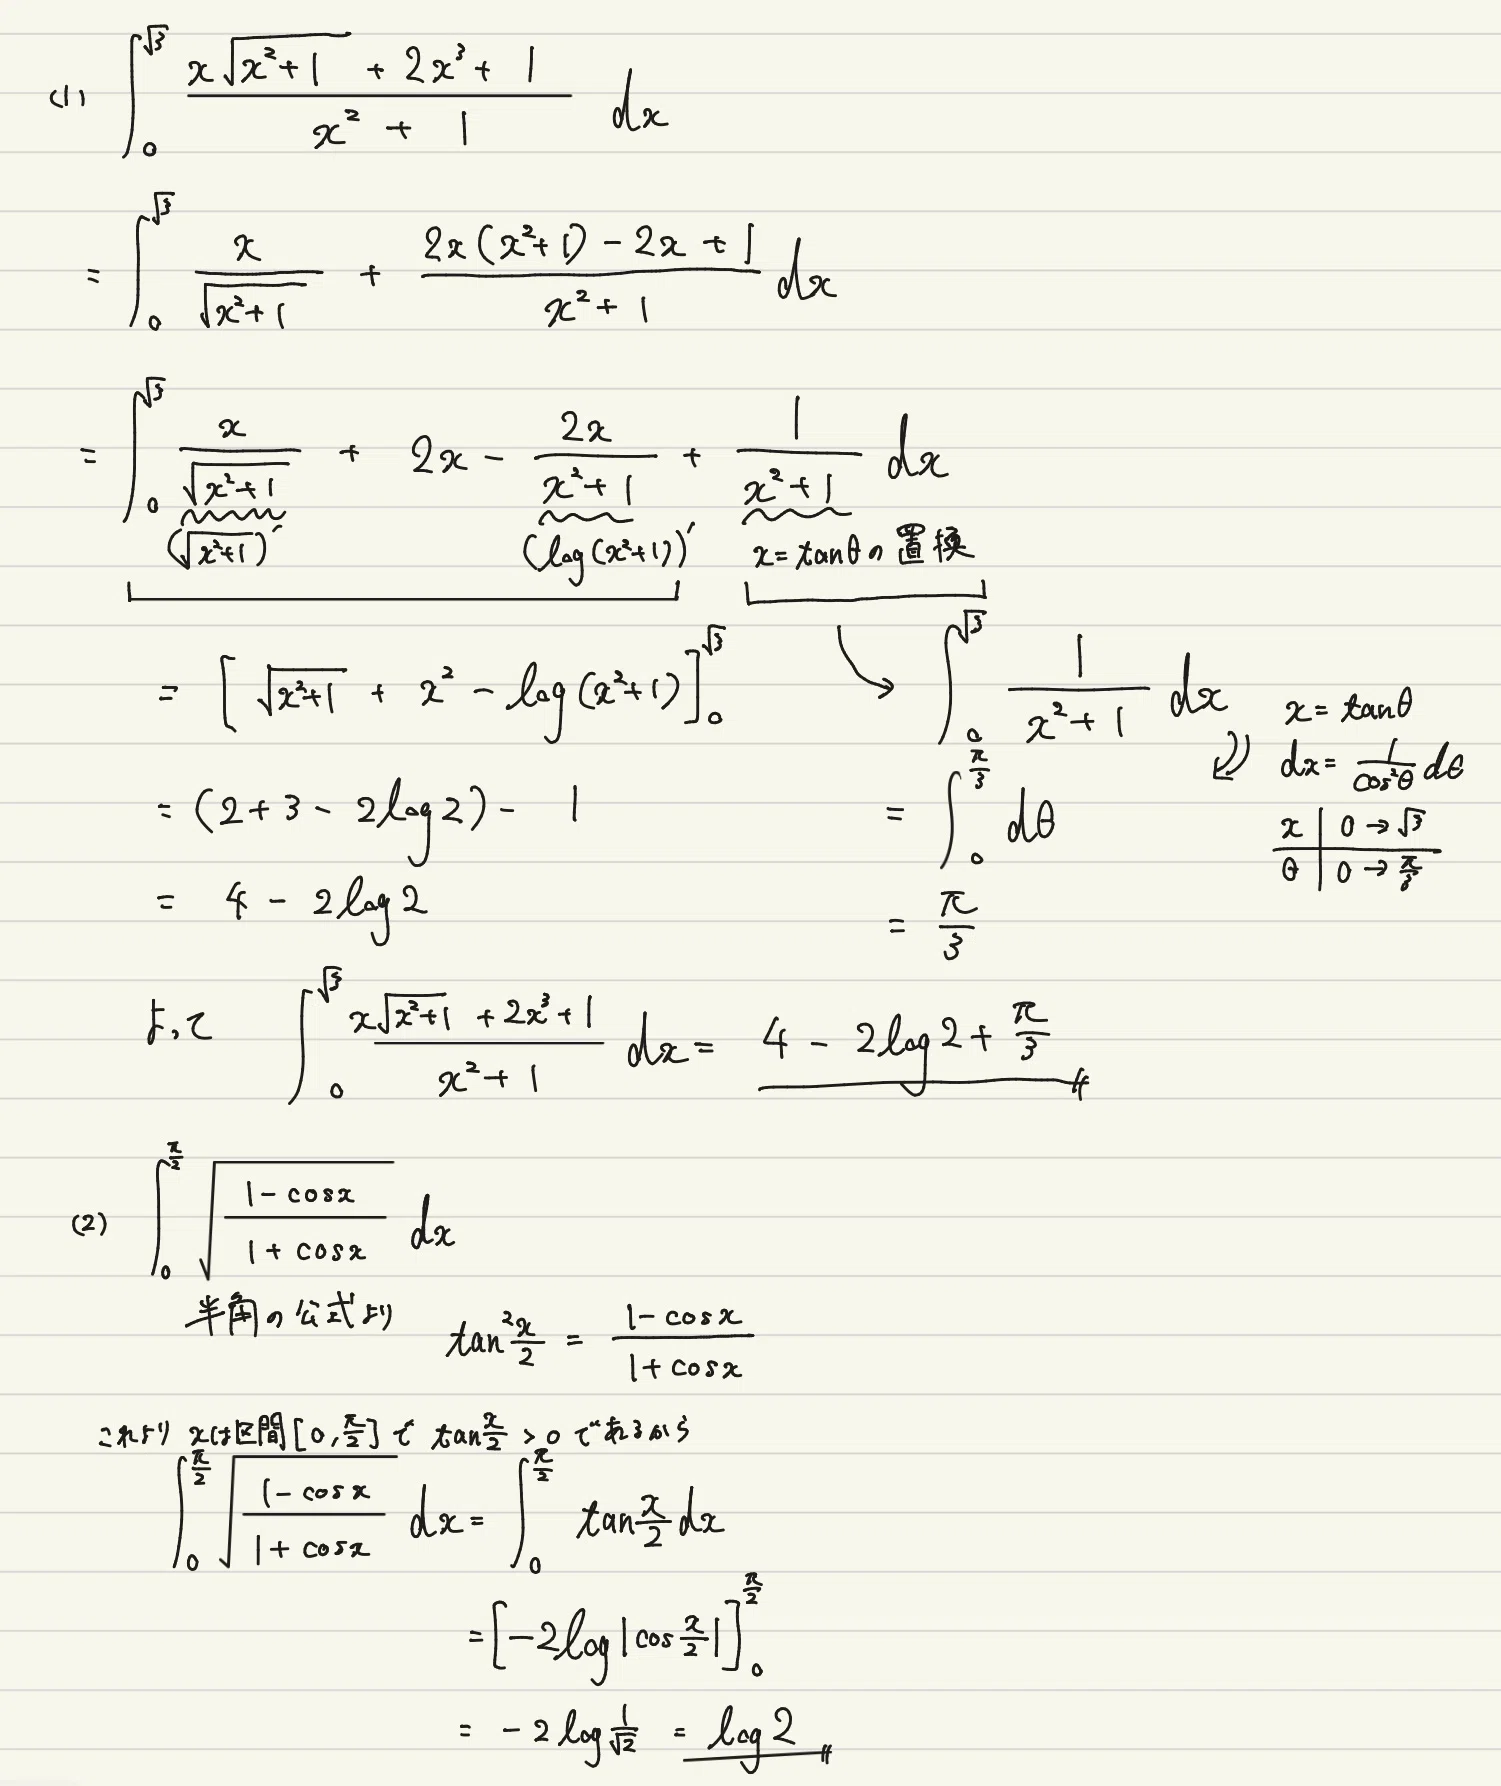 (1) ∫₀^√3 (x√(x²+1) + 2x³ + 1)/(x² + 1) dx
= ∫₀^√3 x/√(x²+1) + (2x(x²+1) - 2x + 1)/(x²+1) dx
= ∫₀^√3 x/√(x²+1) + 2x - 2x/(x²+1) + 1/(x²+1) dx
(√(x²+1))′ (log(x²+1))′ x = tanθの置換
= [√(x²+1) + x² - log(x²+1)]₀^√3
= (2+3-2log2) - 1
= 4 - 2log2
∫₀^√3 1/(x²+1) dx
x = tanθ
dx = 1/cos²θ dθ
x | 0 → √3
θ | 0 → π/3
= ∫₀^(π/3) dθ
= π/3
よって ∫₀^√3 (x√(x²+1) + 2x³ + 1)/(x²+1) dx = 4 - 2log2 + π/3
(2) ∫₀^(π/2) √((1-cosx)/(1+cosx)) dx
半角の公式より tan² x/2 = (1-cosx)/(1+cosx)
これより xは区間[0, π/2]で tan x/2 > 0 であるから
∫₀^(π/2) √((1-cosx)/(1+cosx)) dx = ∫₀^(π/2) tan x/2 dx
= [-2log|cos x/2|]₀^(π/2)
= -2log 1/√2 = log2